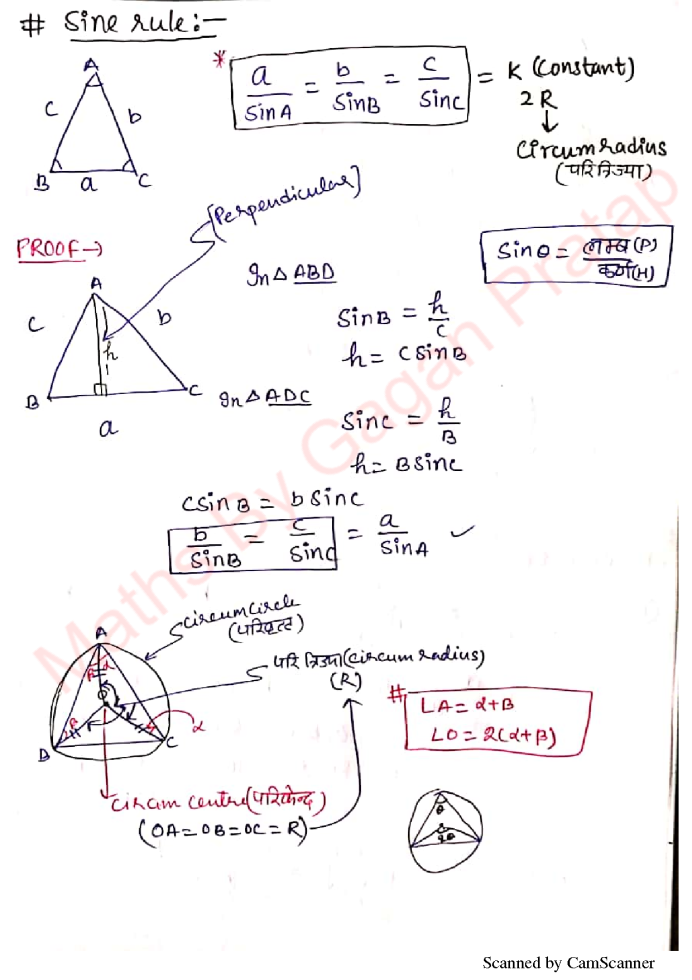 # Sine rule:-
* a/SinA = b/SinB = c/Sinc = K (Constant)
2R
↓
Circumradius
(परित्रिज्या)
A
c b
B a C
[Perpendicular]
PROOF→
Sinθ = लम्ब(P)/कर्ण(H)
In △ ABD
SinB = h/c
h = CSinB
A
c b
h
B C
a
In △ ADC
Sinc = h/B
h = BSinc
CSinB = bSinc
b/SinB = c/Sinc = a/SinA ✓
Circumcircle
(परिवृत्त)
परित्रिज्या(Circumradius)
(R)
A
β α
O
B C α
# LA = α+β
LO = 2(α+β)
Circum centre(परिकेन्द्र)
(OA=OB=OC=R)
θ
2θ
Maths By Gagan Pratap
Scanned by CamScanner